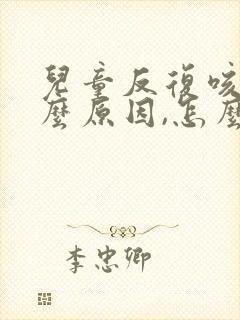 兒童反復咳
麼原因,怎麼
李忠卿